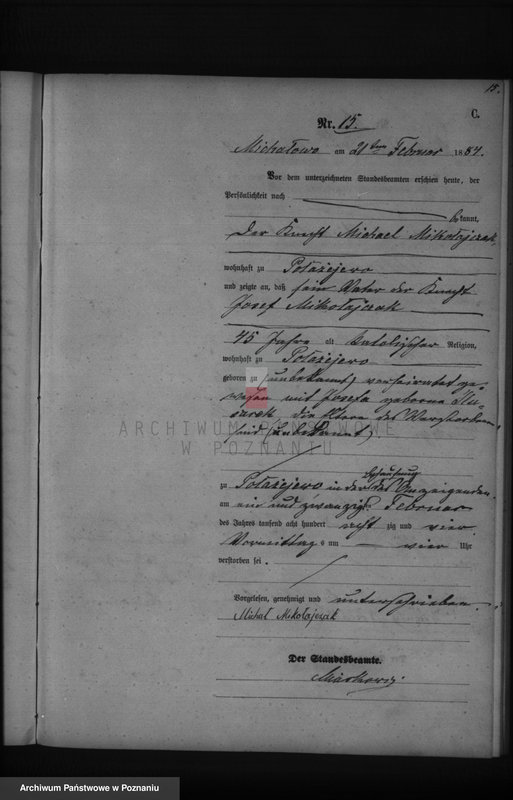 15.
C.
Nr. 15.
Michałowo am 21 ten Februar 1884.
Vor dem unterzeichneten Standesbeamten erschien heute, der
Persönlichkeit nach
bekannt,
der Knecht Michael Mikołajczak
wohnhaft zu Polażejewo
und zeigte an, daß sein Vater der Knecht
Josef Mikołajczak
45 Jahre alt katolischer Religion,
wohnhaft zu Polażejewo
geboren zu (unbekannt) verheiratet ge-
wesen mit Josefa geborne
die Eltern des Verstorbenen
sind (unbekannt)
ARCHIWUM PAŃSTWOWE
W POZNANIU
zu Polażejewo in der Behausung des Anzeigenden
am ein und zwanzigsten Februar
des Jahres tausend acht hundert acht zig und vier
Vormittags um vier Uhr
verstorben sei.
Vorgelesen, genehmigt und unterschrieben
Michał Mikołajczak
Der Standesbeamte.
Archiwum Państwowe w Poznaniu